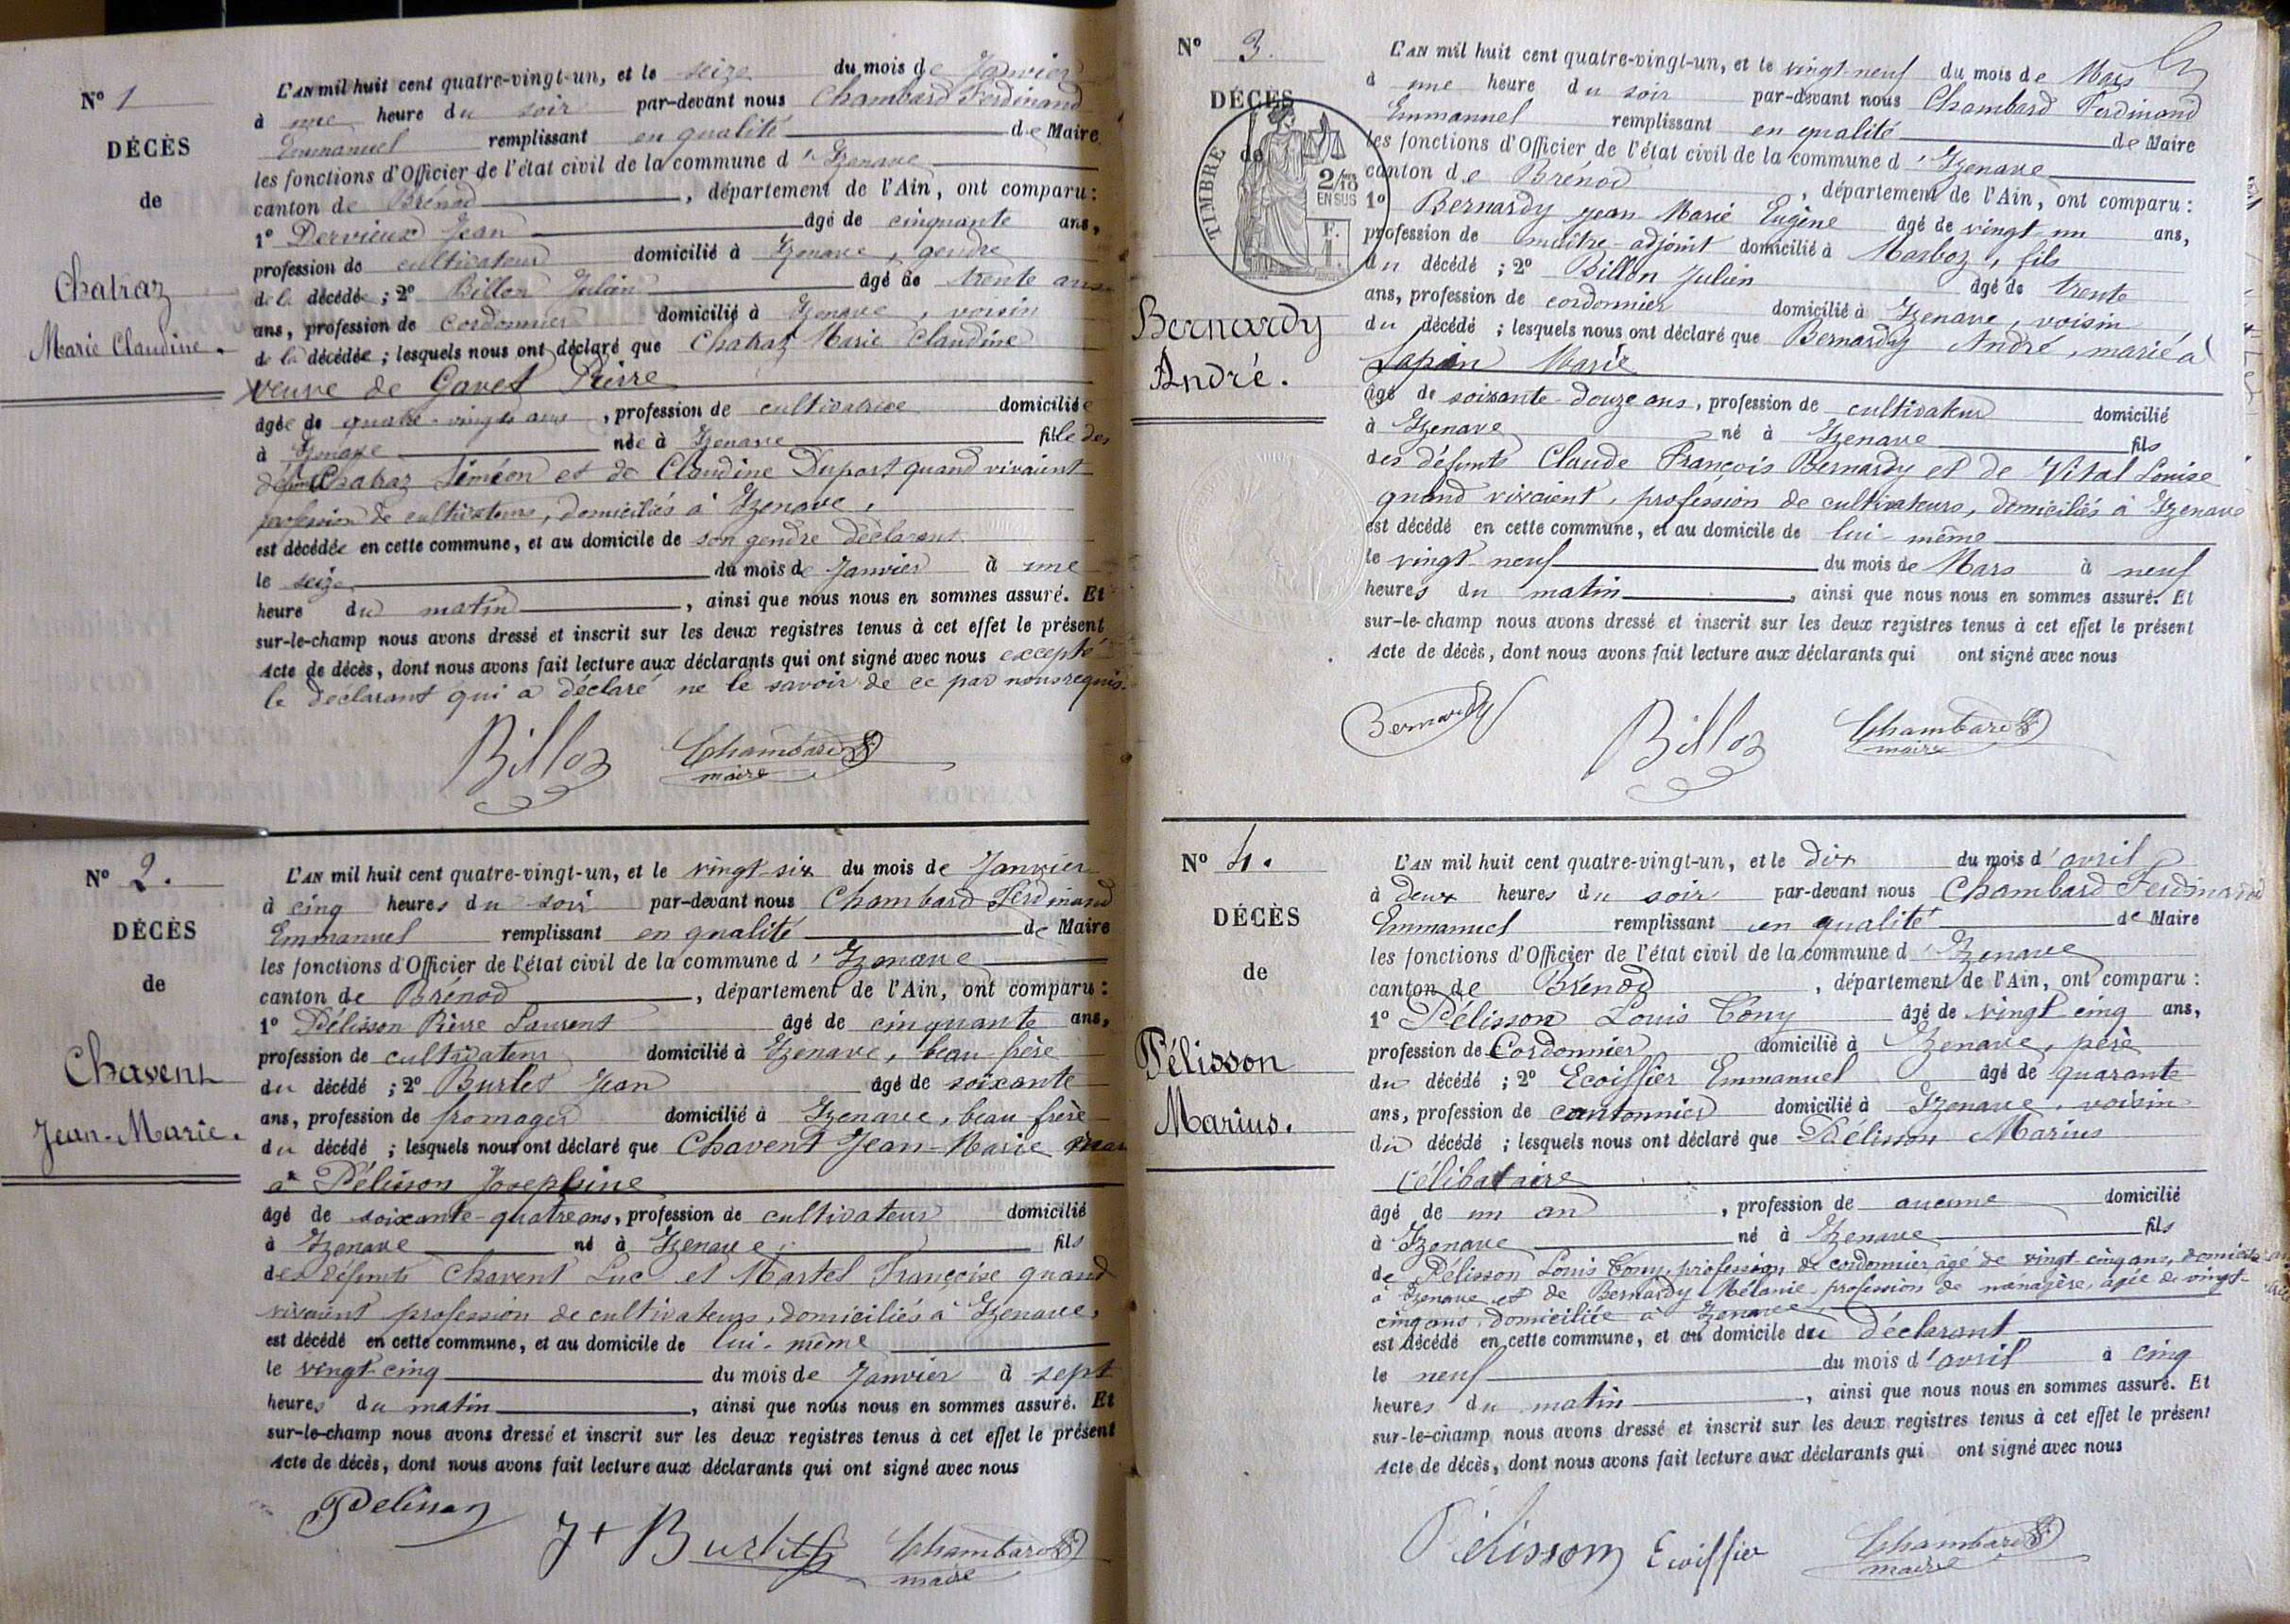 N° 1
DÉCÈS
de
Chatraz
Marie Claudine.
L'AN mil huit cent quatre-vingt-un, et le seize du mois de Janvier
à une heure du soir par-devant nous Chambard Ferdinand
Emmanuel remplissant en qualité de Maire
les fonctions d'Officier de l'état civil de la commune d'Izenave
canton de Brénod, département de l'Ain, ont comparu:
1° Dervieux Jean âgé de cinquante ans,
profession de cultivateur domicilié à Izenave, gendre
de la décédée; 2° Billon Julien âgé de trente ans
ans, profession de cordonnier domicilié à Izenave, voisin
de la décédée; lesquels nous ont déclaré que Chatraz Marie Claudine
veuve de Gavet Pierre
âgée de quatre-vingts ans, profession de cultivatrice domiciliée
à Izenave née à Izenave fille des
défunts Chatraz Siméon et de Claudine Dupart quand vivaient
profession de cultivateurs, domiciliés à Izenave,
est décédée en cette commune, et au domicile de son gendre déclarant
le seize du mois de Janvier à une
heure du matin, ainsi que nous nous en sommes assuré. Et
sur-le-champ nous avons dressé et inscrit sur les deux registres tenus à cet effet le présent
Acte de décès, dont nous avons fait lecture aux déclarants qui ont signé avec nous excepté
le déclarant qui a déclaré ne le savoir de ce par nous requis.
Billon Chambard F
maire
N° 2.
DÉCÈS
de
Chavent
Jean-Marie.
L'AN mil huit cent quatre-vingt-un, et le vingt-six du mois de Janvier
à cinq heures du soir par-devant nous Chambard Ferdinand
Emmanuel remplissant en qualité de Maire
les fonctions d'Officier de l'état civil de la commune d'Izenave
canton de Brénod, département de l'Ain, ont comparu:
1° Pélisson Pierre Laurent âgé de cinquante ans,
profession de cultivateur domicilié à Izenave, beau-frère
du décédé; 2° Burlet Jean âgé de soixante
ans, profession de fromager domicilié à Izenave, beau frère
du décédé; lesquels nous ont déclaré que Chavent Jean-Marie mar
à Pélisson Josephine
âgé de soixante-quatre ans, profession de cultivateur domicilié
à Izenave né à Izenave fils
des défunts Chavent Luc et Martel Françoise quand
vivaient profession de cultivateurs, domiciliés à Izenave,
est décédé en cette commune, et au domicile de lui-même
le vingt-cinq du mois de Janvier à sept
heures du matin, ainsi que nous nous en sommes assuré. Et
sur-le-champ nous avons dressé et inscrit sur les deux registres tenus à cet effet le présent
Acte de décès, dont nous avons fait lecture aux déclarants qui ont signé avec nous
Pelisson J + Burlet Chambard F
maire
N° 3.
DÉCÈS
de
TIMBRE
2/10
EN SUS
F.
1
Bernardy
André.
L'AN mil huit cent quatre-vingt-un, et le vingt-neuf du mois de Mars
à une heure du soir par-devant nous Chambard Ferdinand
Emmanuel remplissant en qualité de Maire
les fonctions d'Officier de l'état civil de la commune d'Izenave
canton de Brénod, département de l'Ain, ont comparu:
1° Bernardy Jean Marie Eugène âgé de vingt un ans,
profession de maître-adjoint domicilié à Marboz, fils
du décédé; 2° Billon Julien âgé de trente
ans, profession de cordonnier domicilié à Izenave, voisin
du décédé; lesquels nous ont déclaré que Bernardy André, marié à
Sapin Marie
âgé de soixante-douze ans, profession de cultivateur domicilié
à Izenave né à Izenave fils
des défunts Claude François Bernardy et de Vital Louise
quand vivaient, profession de cultivateurs, domiciliés à Izenave
est décédé en cette commune, et au domicile de lui-même
le vingt-neuf du mois de Mars à neuf
heures du matin, ainsi que nous nous en sommes assuré. Et
sur-le-champ nous avons dressé et inscrit sur les deux registres tenus à cet effet le présent
Acte de décès, dont nous avons fait lecture aux déclarants qui ont signé avec nous
Bernardy Billon Chambard F
maire
N° 4.
DÉCÈS
de
Pélisson
Marius.
L'AN mil huit cent quatre-vingt-un, et le dix du mois d'avril
à deux heures du soir par-devant nous Chambard Ferdinand
Emmanuel remplissant en qualité de Maire
les fonctions d'Officier de l'état civil de la commune d'Izenave
canton de Brénod, département de l'Ain, ont comparu:
1° Pélisson Louis Tony âgé de vingt cinq ans,
profession de Cordonnier domicilié à Izenave, père
du décédé; 2° Ecoiffier Emmanuel âgé de quarante
ans, profession de cantonnier domicilié à Izenave, voisin
du décédé; lesquels nous ont déclaré que Pélisson Marius
Célibataire
âgé de un an, profession de aucune domicilié
à Izenave né à Izenave fils
de Pélisson Louis Tony, profession de cordonnier âgé de vingt-cinq ans, domicilié
à Izenave et de Bernardy Mélanie profession de ménagère, agée de vingt-
cinq ans, domiciliée à Izenave,
est décédé en cette commune, et au domicile du déclarant
le neuf du mois d'avril à cinq
heures du matin, ainsi que nous nous en sommes assuré. Et
sur-le-champ nous avons dressé et inscrit sur les deux registres tenus à cet effet le présent
Acte de décès, dont nous avons fait lecture aux déclarants qui ont signé avec nous
Pélisson Ecoiffier Chambard F
maire